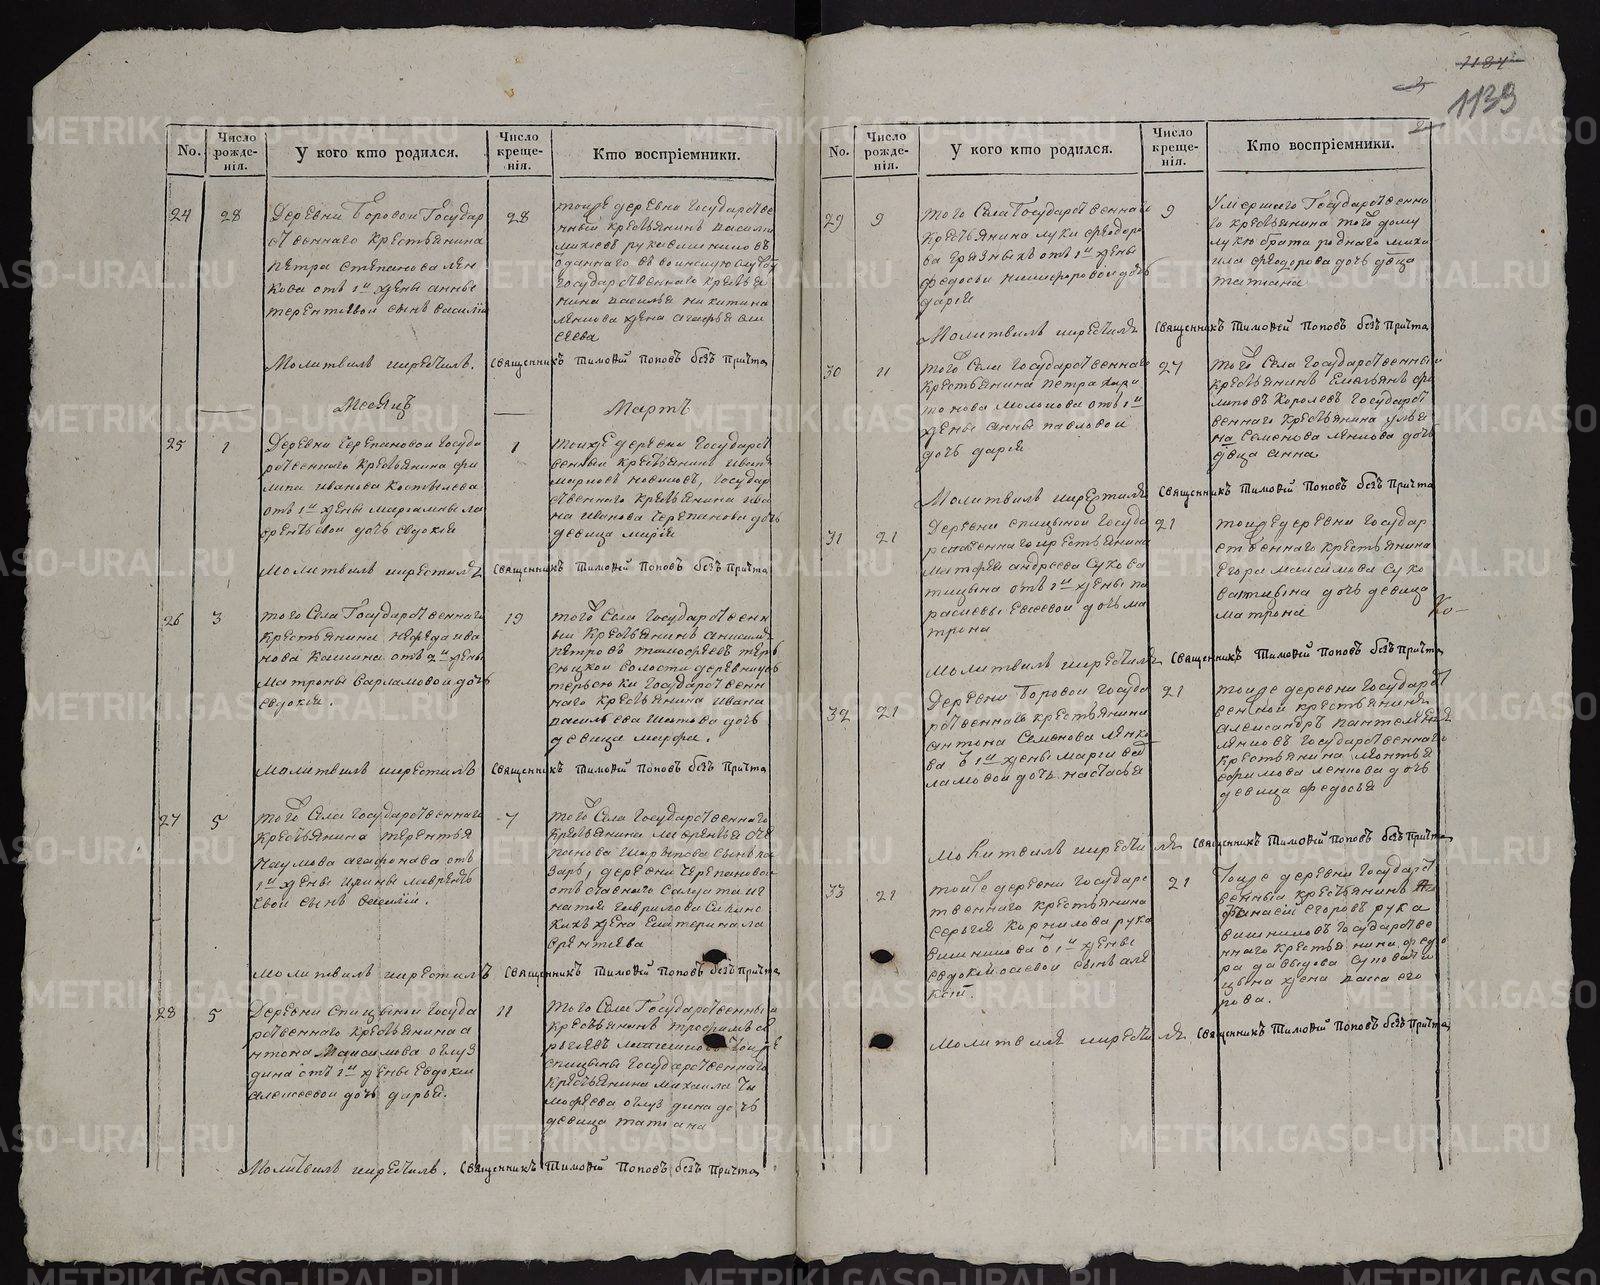 1139
No.
Число рожде-нія.
У кого кто родился.
Число креще-нія.
Кто воспріемники.
24
28
Деревни Боровой Государ
ственнаго Крестьянина
Петра Степанова лян
кова отъ 1й жены анны
терентьевой сынъ василій
28
тойже деревни государстве
нный крестьянинъ васили
государственнаго крестья
нина василья никитина
лянкова жена агафья
Молитвилъ икрестилъ.
священникъ Тимофей Поповъ безъ причта
Месяцъ
Мартъ
25
1
Деревни Черепановой госуда
рственнаго крестьянина фи
липа иванова Костылева
отъ 1й жены
дочь евдокія
1
тойже деревни государст
венный крестьянинъ иванъ
новиковъ, государ
ственнаго крестьянина ива
на иванова Черепанова дочь
девица марія
молитвилъ икрестилъ
священникъ Тимофей Поповъ безъ причта
26
3
того села Государственнаго
крестьянина нефеда ива
нова Кашина отъ 2й жены
матроны варламовой дочь
евдокія.
19
того села государственн
ый крестьянинъ
петровъ тимофеевъ
волости деревни
государственн
наго крестьянина ивана
васильева дочь
девица марфа.
молитвилъ икрестилъ
священникъ Тимофей Поповъ безъ причта
27
5
того села государственнаго
крестьянина терентья
наумова агафонова отъ
1й жены ирины лаврентье
вой сынъ василій.
7
того села государственнаго
крестьянина лаврентья сте
панова сынъ на
заръ, деревни Черепановой
отставнаго салдата иг
натія гаврилова
жена екатерина ла
врентьева
молитвилъ икрестилъ
священникъ Тимофей Поповъ безъ причта
28
5
Деревни Спицыной госуда
рственнаго крестьянина а
нтона Максимова оглуз
дина отъ 1й жены евдокіи
алексеевой дочь дарья.
11
того села Государственный
крестьянинъ трофимъ
тойже
спицыны государственнаго
крестьянина михаила ти
мофеева оглуздина дочь
девица татіана
Молитвилъ икрестилъ.
священникъ Тимофей Поповъ безъ причта
No.
Число рожде-нія.
У кого кто родился.
Число креще-нія.
Кто воспріемники.
29
9
того села государственнаго
крестьянина луки феодоро
ва грязныхъ отъ 1й жены
федосьи никифоровой дочь
дарія
9
умершаго государственна
го крестьянина того дому
луки брата роднаго миха
ила феодорова дочь девца
татіана
Молитвилъ икрестилъ
священникъ Тимофей Поповъ безъ причта
30
11
того села государственнаго
крестьянина петра хари
тонова молокова отъ 1й
жены анны павловой
дочь дарія
27
того села государственный
крестьянинъ емельянъ фи
липовъ Королевъ государст
веннаго крестьянина улья
на семенова лянкова дочь
девца анна
Молитвилъ икрестилъ
священникъ Тимофей Поповъ безъ причта
31
21
Деревни спицыной госуда
рственнаго крестьянина
матфея андреева сукова
тицына отъ 1й жены па
расковьи евсеевой дочь ма
трона
21
тойже деревни государ
ственнаго крестьянина
Егора максимова суко
ватицына дочь девица
матрона
молитвилъ икрестилъ
священникъ Тимофей Поповъ безъ причта
32
21
Деревни Боровой госуда
рственнаго крестьянина
антона семенова лянко
ва 1й жены марфы вар
ламовой дочь настасья
21
тойже деревни государст
венной крестьянинъ
александръ пантелеевъ
лянковъ государственнаго
крестьянина
ефимова ленкова дочь
девица федосья
молитвилъ икрестилъ
священникъ Тимофей Поповъ безъ причта
33
21
тойже деревни государс
твенного крестьянина
сергея корнилова рука
вишникова 1й жены
сынъ але
ксій.
21
тойже деревни государст
венный крестьянинъ
афанасій егоровъ рука
вишниковъ государстве
ннаго крестьянина федо
ра давыдова суковати
цына жена
молитвилъ икрестилъ
священникъ Тимофей Поповъ безъ причта
METRIKI.GASO-URAL.RU